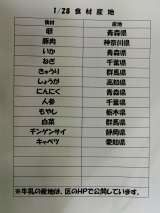 1/28 食材産地
食材 産地
卵 青森県
豚肉 神奈川県
いか 青森県
ねぎ 千葉県
きゅうり 群馬県
しょうが 高知県
にんにく 青森県
人参 千葉県
もやし 栃木県
白菜 群馬県
チンゲンサイ 静岡県
キャベツ 愛知県
※牛乳の産地は、区のHPで公開しています。